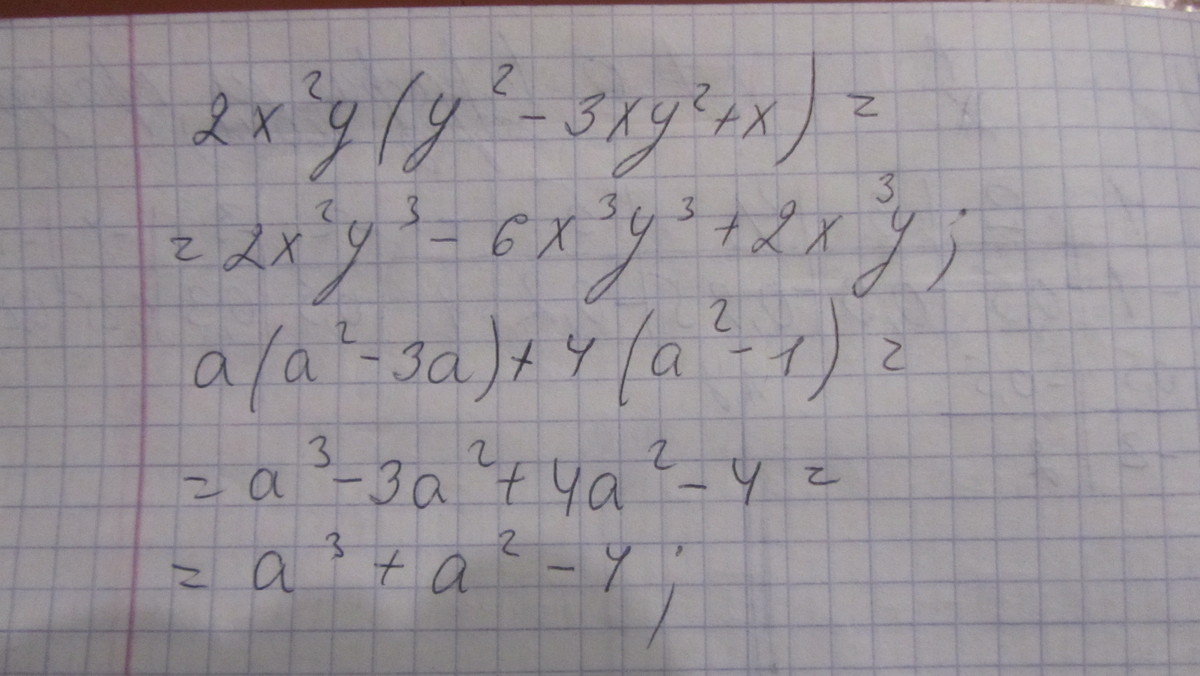 2x²y(y² - 3xy² + x) =
= 2x²y³ - 6x³y³ + 2x³y;
a(a² - 3a) + 4(a² - 1) =
= a³ - 3a² + 4a² - 4 =
= a³ + a² - 4;